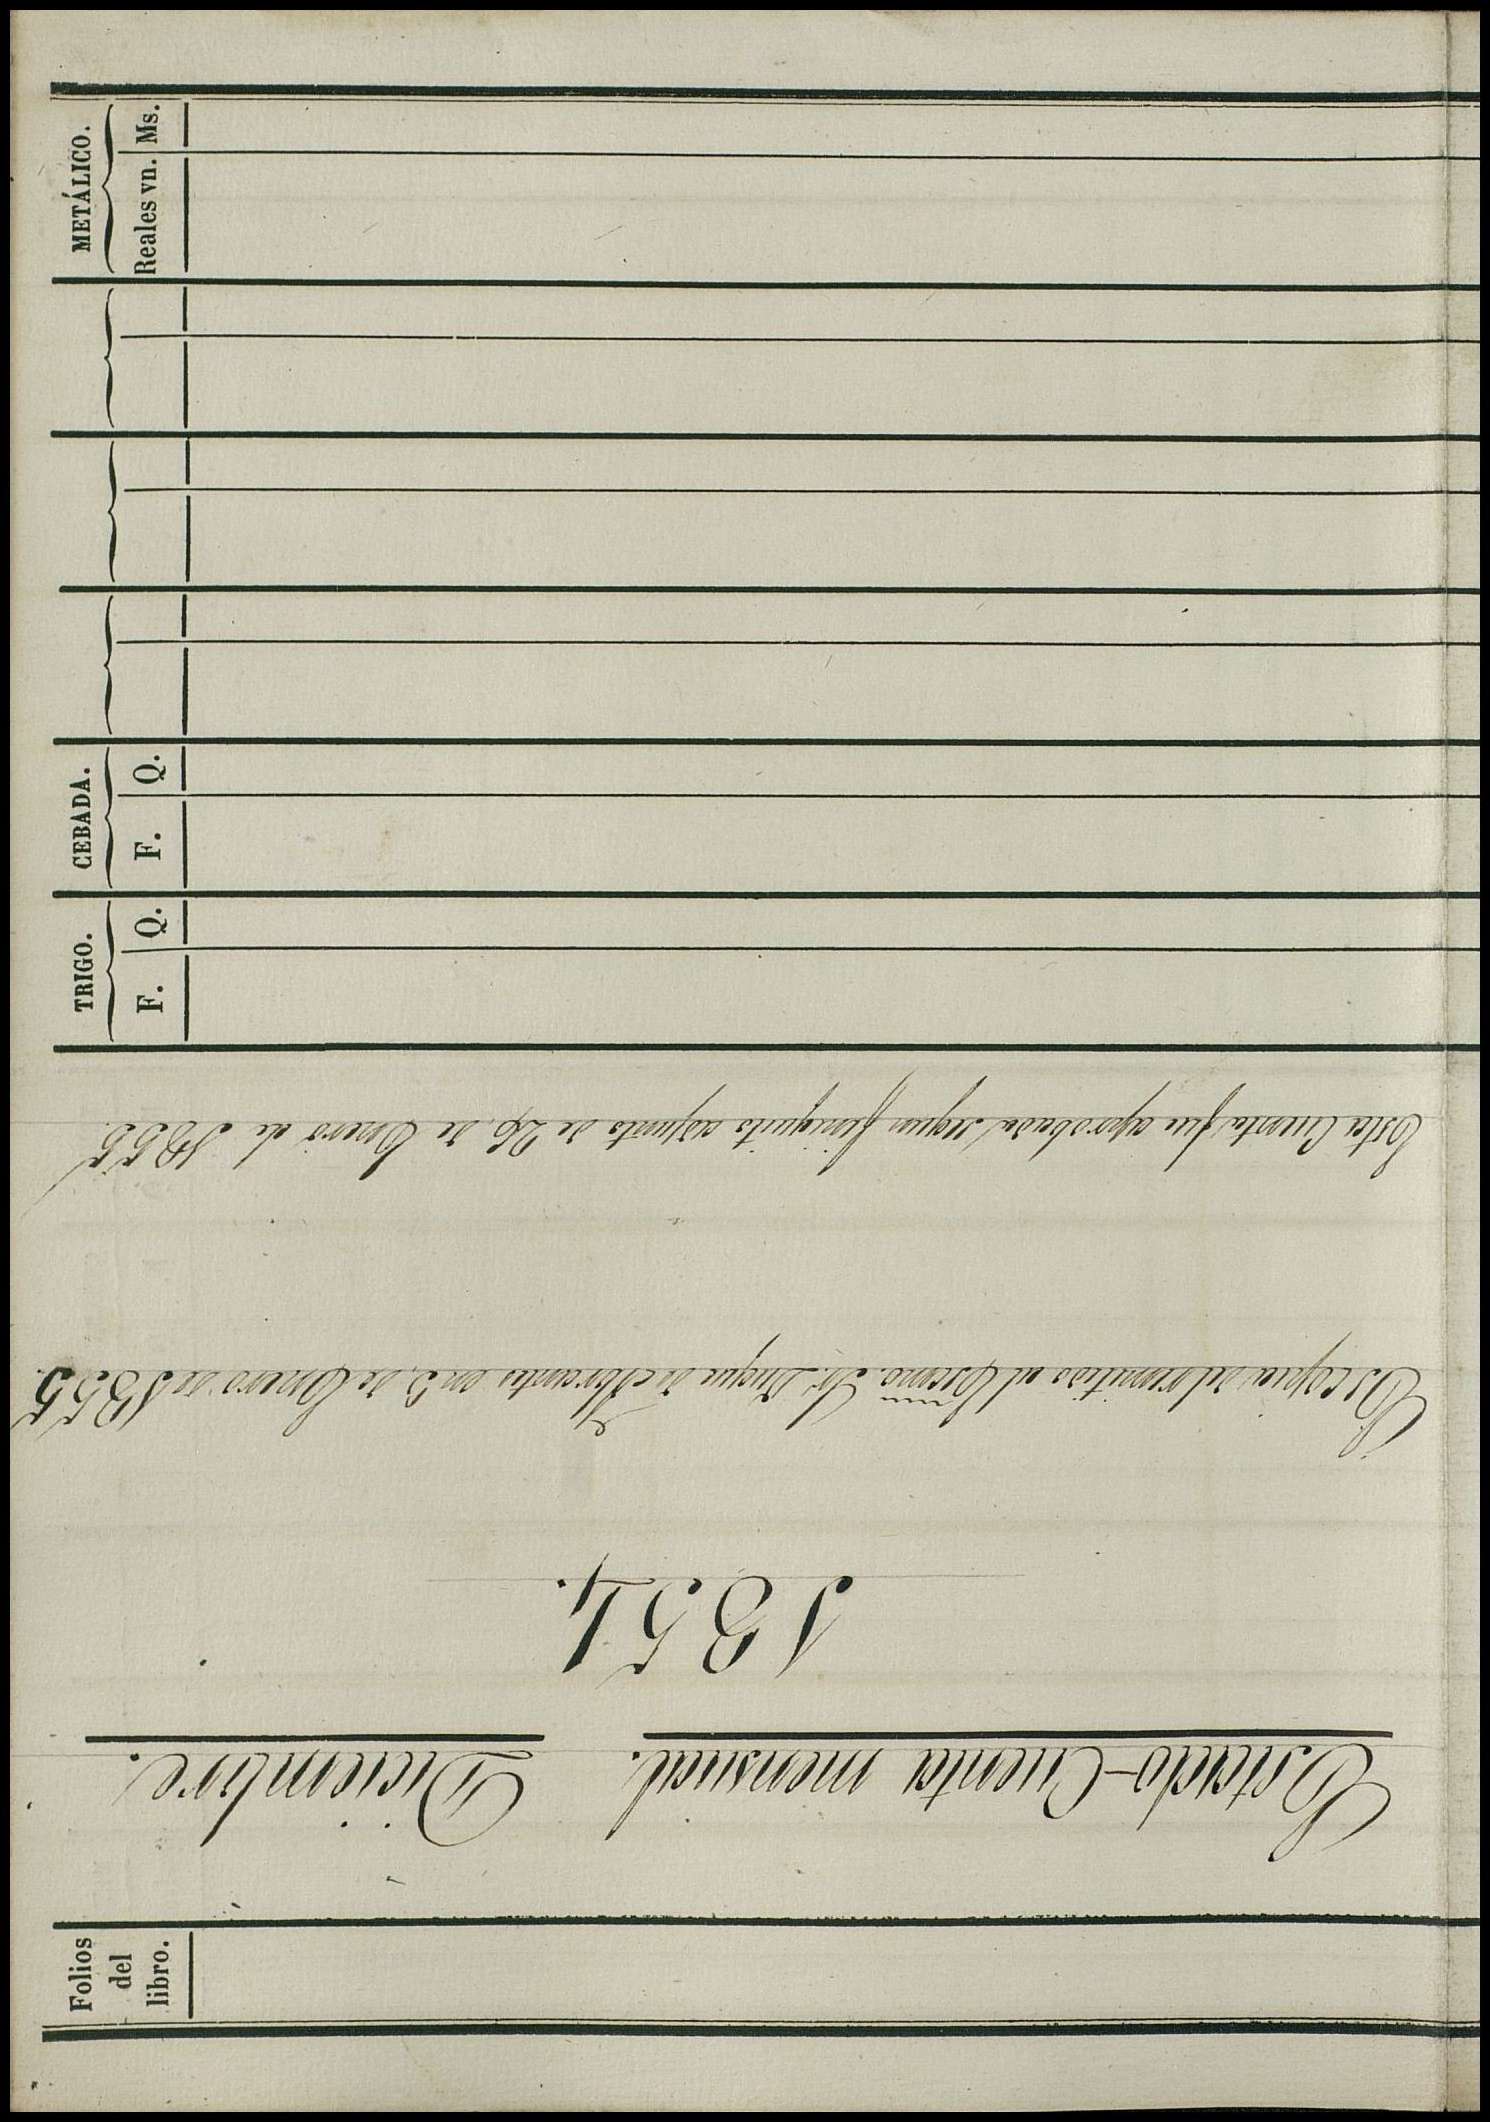 Estado-Cuenta mensual. Diciembre.
1854.
Es copia del remitido al Excmo. Sr. Duque de Abrantes en 5, de Enero de 1855.
Esta Cuenta fue aprobada segun finiquito adjunto de 26, de Enero de 1855.
Folios
del
libro.
TRIGO.
F. Q.
CEBADA.
F. Q.
METÁLICO.
Reales vn. Ms.